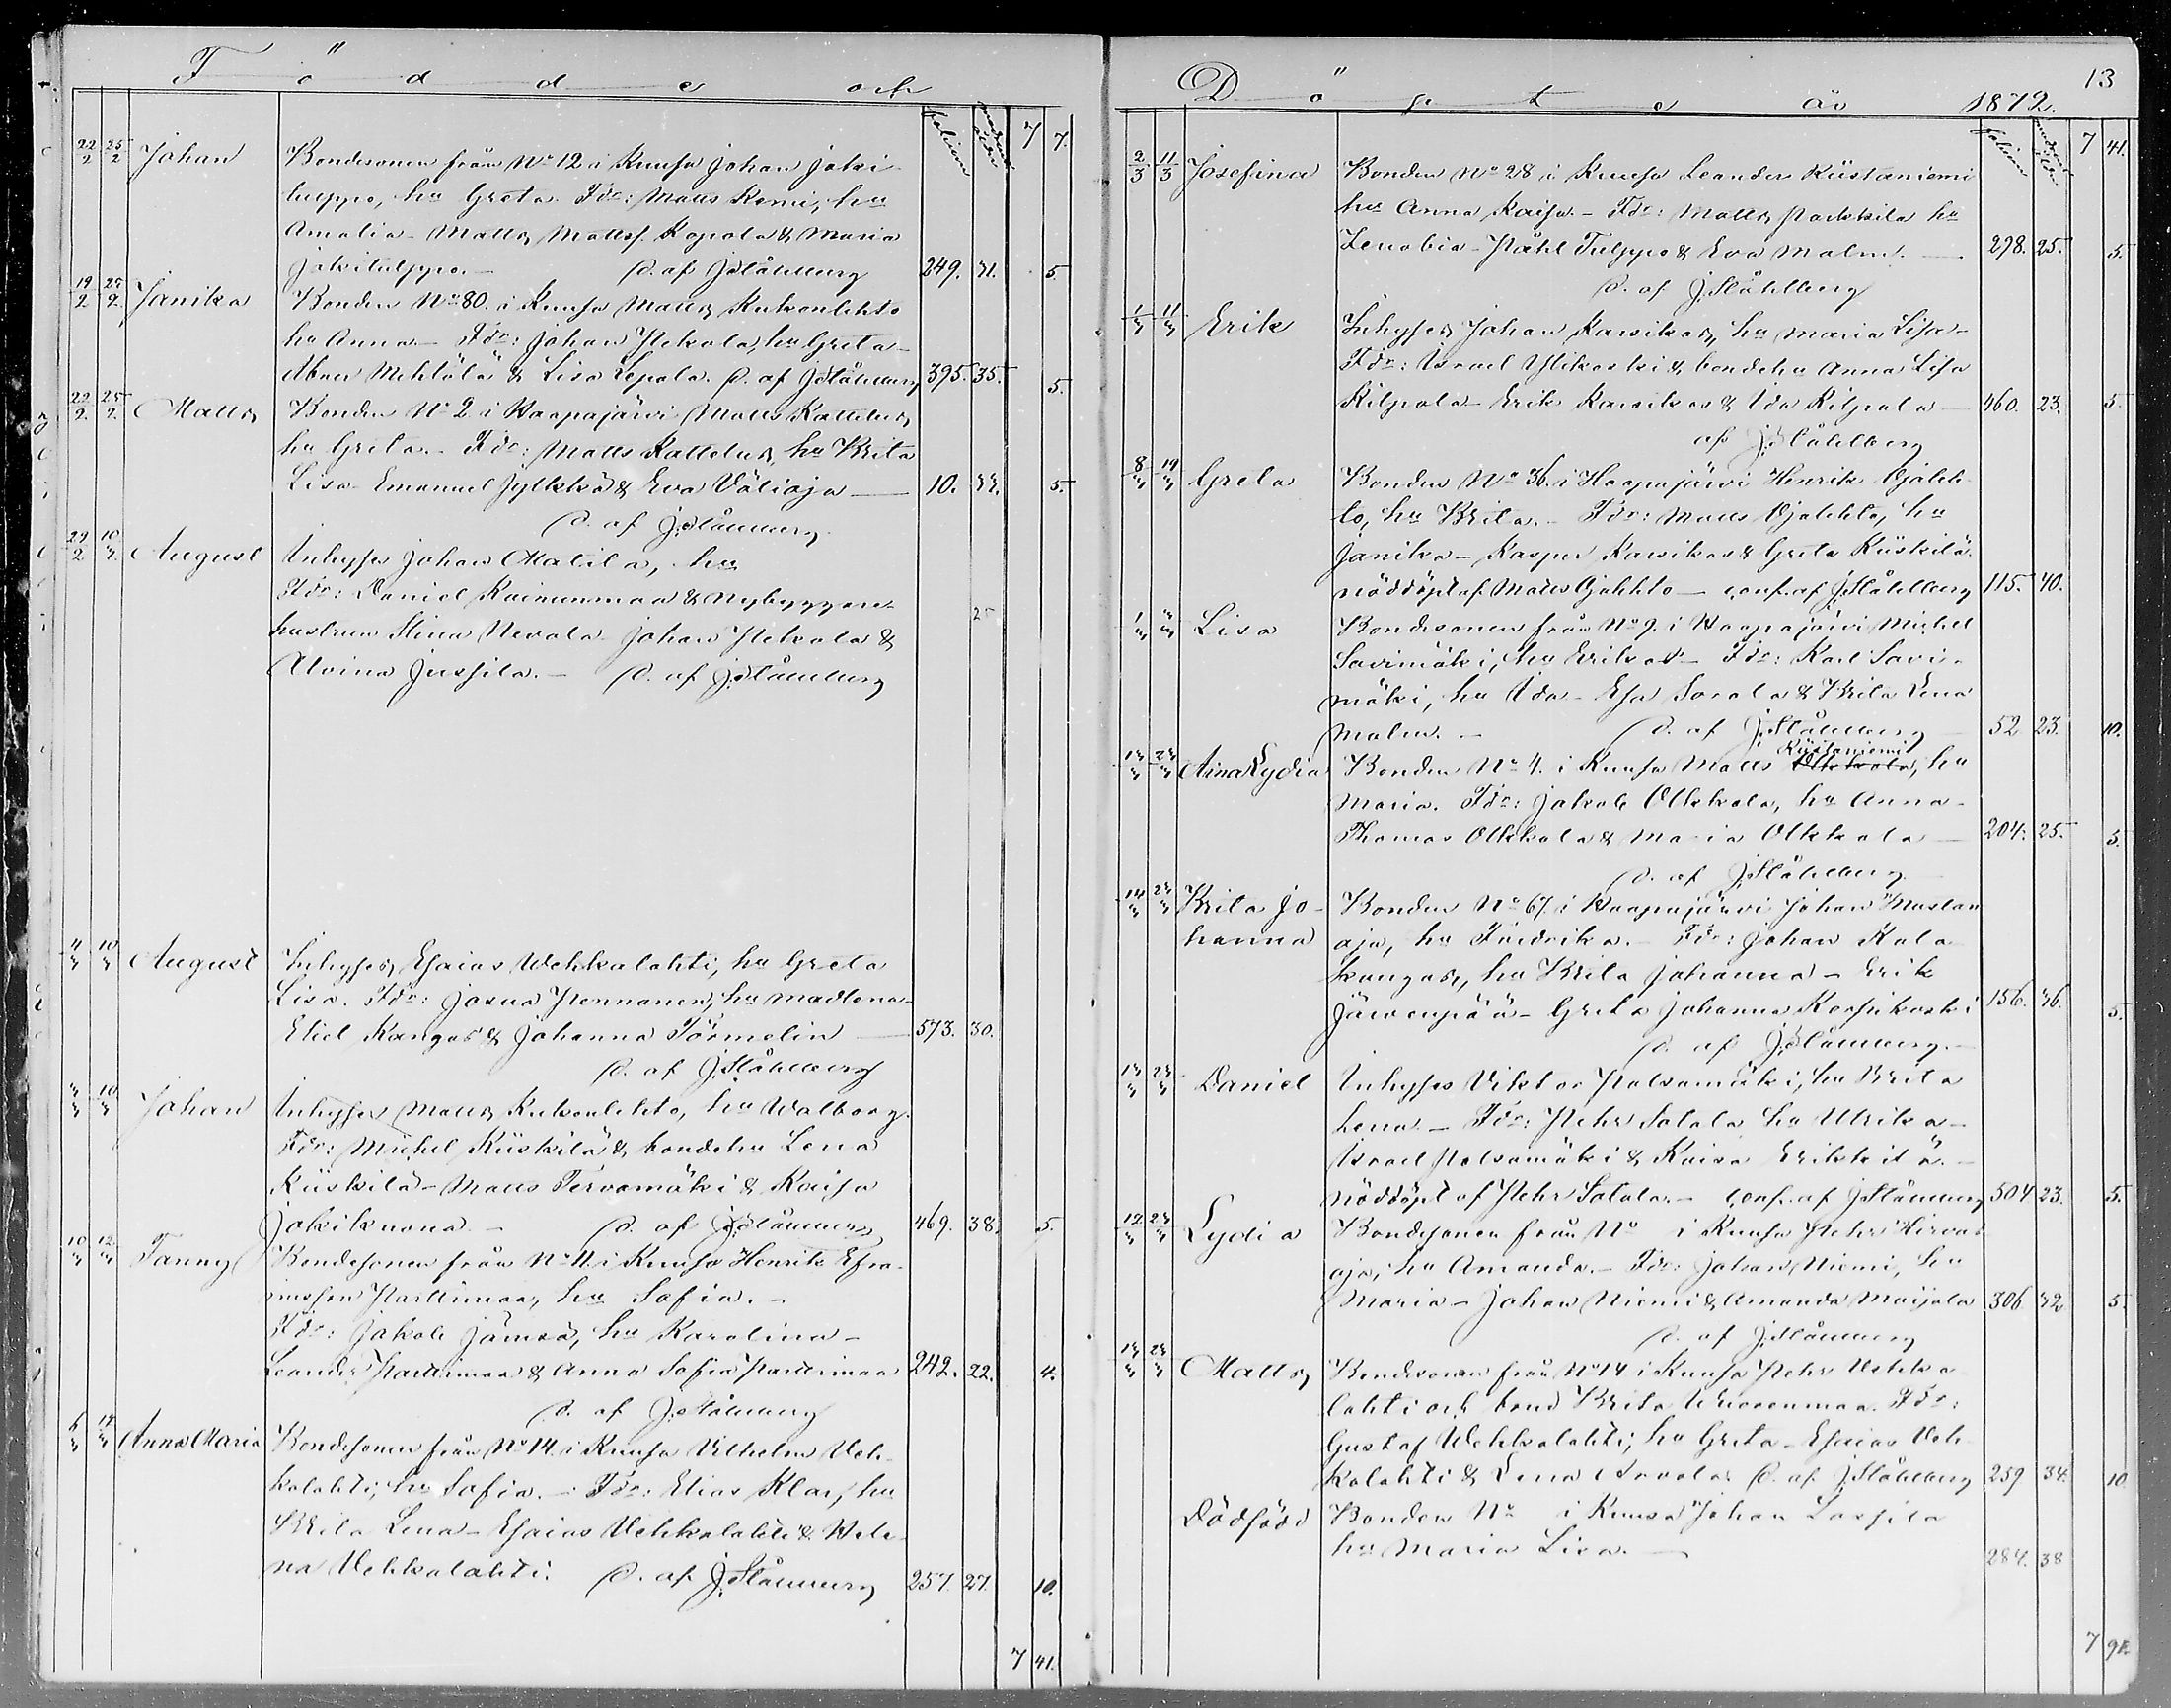 Födde och
folium moderns ålder 7 7.
22/2 25/2 Johan Bondesonen från No 12 i Kumfa Johan Joki-
tulppo, hu Greta. Fdr: Matts Remi, hu
Amalia - Matts Mattsf. Kopola & Maria
Jokitulppo. - D. af J. Ståhlberg 249. 31. 5.
19/2 25/2 Janika Bonden No 80. i Kumfa Matts Kukonlehto
hu Anna. - Fdr: Johan Pekola, hu Greta -
Abner Mehtälä & Lisa Lepola. D. af J Ståhlberg 395. 35. 5.
22/2. 25/2. Matts Bonden No 2 i Haapajärvi Matts Kattelus,
hu Greta. - Fdr: Matts Kattelus, hu Brita
Lisa - Emanuel Jylkkä & Eva Väliaja 10. 33. 5.
D. af J. Ståhlberg
29/2 10/3. August Inhyses Johan Matila, hu
Fdr: Daniel Kainunmaa & Nybyggare-
hustrun Stina Nevala - Johan Pekola & 25
Alvina Jussila. - D. af J. Ståhlberg
4/3 10/3 August Inhyses Esaias Wehkalahti, hu Greta
Lisa. Fdr: Josua Pennanen, hu Madlena -
Eliel Kangas & Johanna Törmelin 573. 30.
D. af J. Ståhlberg
3/3 10/3 Johan Inhyses Matts Kukonlehto, hu Walborg.
Fdr: Michel Kiiskilä & bondehu Lena
Kiiskilä - Matts Tervamäki & Kaisa
Jokiknona. - D. af J. Ståhlberg 469. 38. 5.
10/3 12/3 Fanny Bondesonen från No 11. i Kumfa Henrik Efra-
imsson Parttimaa, hu Sofia. -
Fdr: Jakob Jämsä, hu Karolina -
Leander Parttimaa & Anna Sofia Parttimaa 242. 22. 4.
D. af J. Ståhlberg
Anna Maria Bondesonen från No 14. i Kumfa Vilhelm Veh-
kalahti, hu Sofia. - Fdr: Elias Klar, hu
Brita Lena - Esaias Vehkalahti & Wele-
na Vehkalahti. D. af J. Ståhlberg 257. 27. 10.
7 41.
Döpte år 1872. 13
folium moderns ålder 7 41.
2/3 11/3 Josefina Bonden No 28 i Kumfa Leander Kiistaniemi
hu Anna Kaisa. - Fdr: Matts Parkkila hu
Zenobia - Påhl Tulppo & Eva Malm. 298. 25. 5.
D. af J. Ståhlberg
1/3 11/3 Erik Inhyses Johan Karsikas, hu Maria Lisa -
Fdr: Israel Ylikoski & bondehu Anna Lisa
Kilpala - Erik Karsikas & Ida Kilpala 460. 23. 5.
af J. Ståhlberg
8/3 19/3 Greta Bonden No 36. i Haapajärvi Henrik Ojaleh-
to, hu Brita. - Fdr: Matts Ojalehto, hu
Janika - Kasper Karsikas & Greta Kiiskilä.
nöddöpt af Matts Ojalehto - conf. af J. Ståhlberg 115. 40.
Lisa Bondesonen från No 9. i Haapajärvi Michel
Savimäki, hu Erika - Fdr: Karl Savi-
mäki, hu Ida - Esa Sorola & Brita Lena
Malm. - D. af J. Ståhlberg 52 23. 10.
Kiistaniemi
Aina Lydia Bonden No 4. i Kumfa Matts Olkkola, hu
Maria. Fdr: Jakob Olkkola, hu Anna -
Thomas Olkkola & Maria Olkkola 204. 25. 5.
D. af J. Ståhlberg
Brita Jo- Bonden No 67. i Haapajärvi Johan Mustan
hanna oja, hu Fredrika. - Fdr: Johan Kala
kangas, hu Brita Johanna - Erik
Järvenpää - Greta Johanna Korpikoski 156. 36. 5.
D. af J. Ståhlberg. -
Daniel Inhyses Viktor Palsamäki, hu Brita
Lena. - Fdr: Pehr Salala hu Ulrika -
Israel Palsamäki & Kaisa Erikkilä. -
nöddöpt af Pehr Salala. - conf. af J. Ståhlberg 504 23. 5.
Lydia Bondesonen från No i Kumfa Pehr Hirvas
oja, hu Amanda. - Fdr: Johan Niemi, hu
Maria - Johan Niemi & Amanda Maijala 306 32 5.
D. af J. Ståhlberg
Matts Bondesonen från No 14 i Kumfa Pehr Vehka
lahti och hu Brita Wuorenmaa. Fdr:
Gustaf Wehkalahti, hu Greta - Esaias Veh-
kalahti & Lena Arvola. D. af J. Ståhlberg 259 34. 10.
Dödfödd Bonden No i Kumfa Johan Lassila
hu Maria Lisa. - 284. 38
7 91.